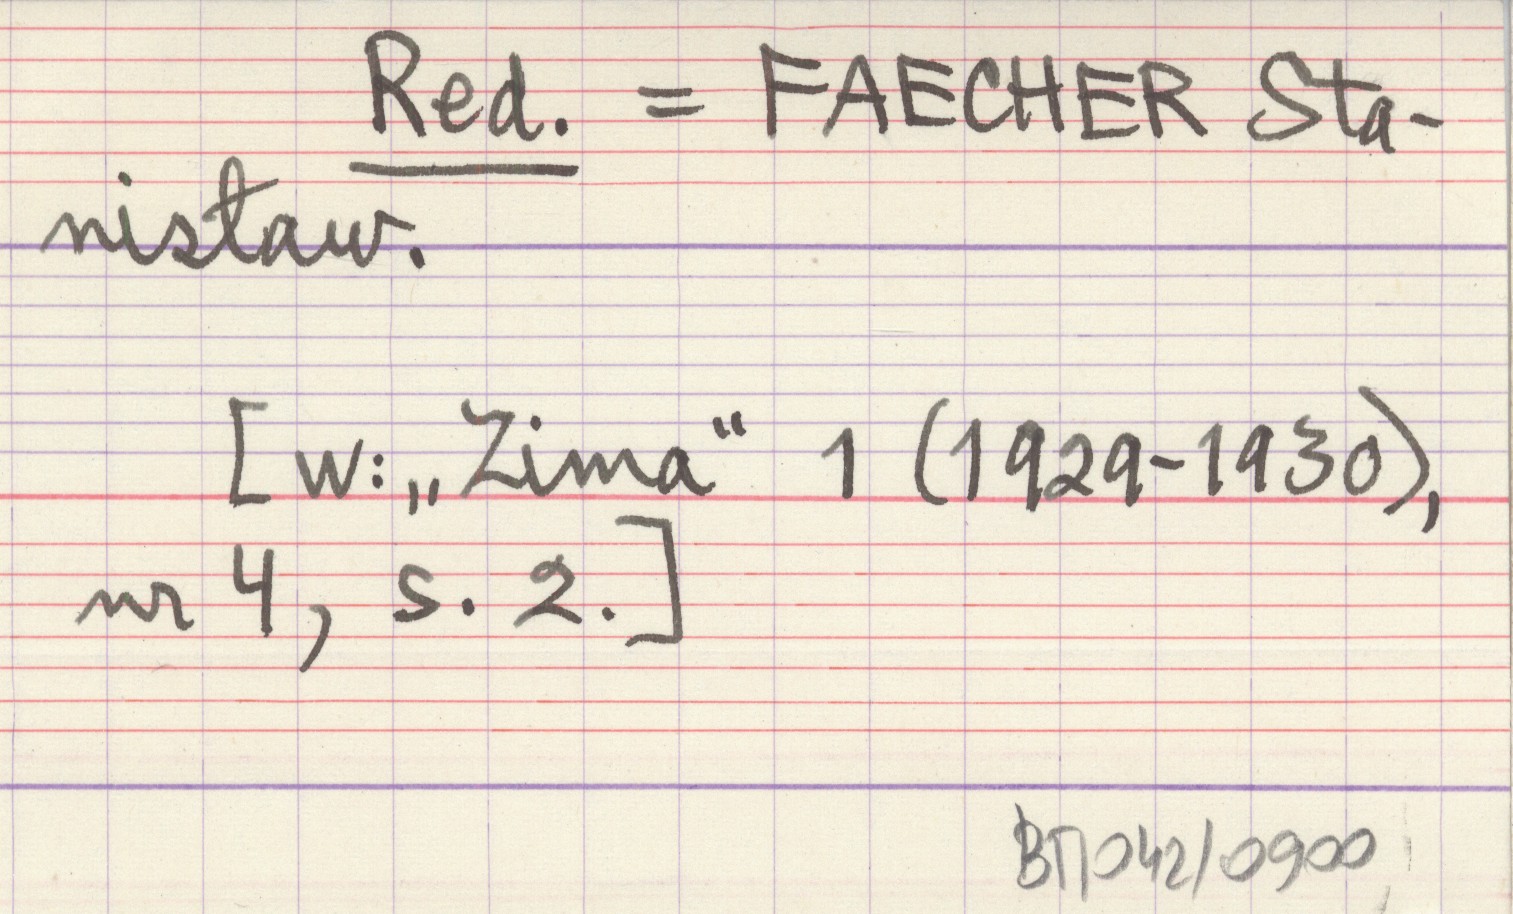 Red. = FAECHER Sta-
nisław.
[w: „Zima“ 1 (1929-1930),
nr 4, s. 2.]
ВП042/0900